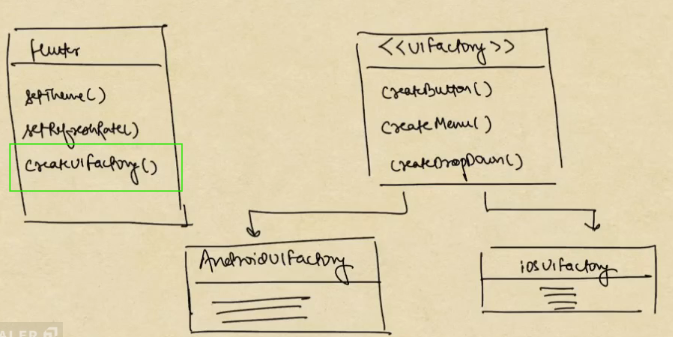 Flutter
setTheme()
setRefreshRate()
createUiFactory()
<<UiFactory>>
createButton()
createMenu()
createDropDown()
AndroidUiFactory
iosUiFactory
ALER